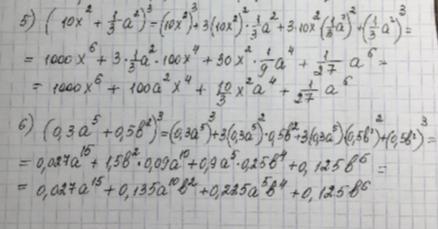 5) (10x² + 1/3 a²)³ = (10x²)³ + 3(10x²)²·1/3 a² + 3·10x²(1/3 a²)² + (1/3 a²)³ =
= 1000x⁶ + 3·1/3 a²·100x⁴ + 30x²·1/9 a⁴ + 1/27 a⁶ =
= 1000x⁶ + 100a²x⁴ + 10/3 x²a⁴ + 1/27 a⁶
6) (0,3a⁵ + 0,5b²)³ = (0,3a⁵)³ + 3(0,3a⁵)²·0,5b² + 3(0,3a⁵)(0,5b²)² + (0,5b²)³ =
= 0,027a¹⁵ + 1,5b²·0,09a¹⁰ + 0,9a⁵·0,25b⁴ + 0,125b⁶ =
= 0,027a¹⁵ + 0,135a¹⁰b² + 0,225a⁵b⁴ + 0,125b⁶